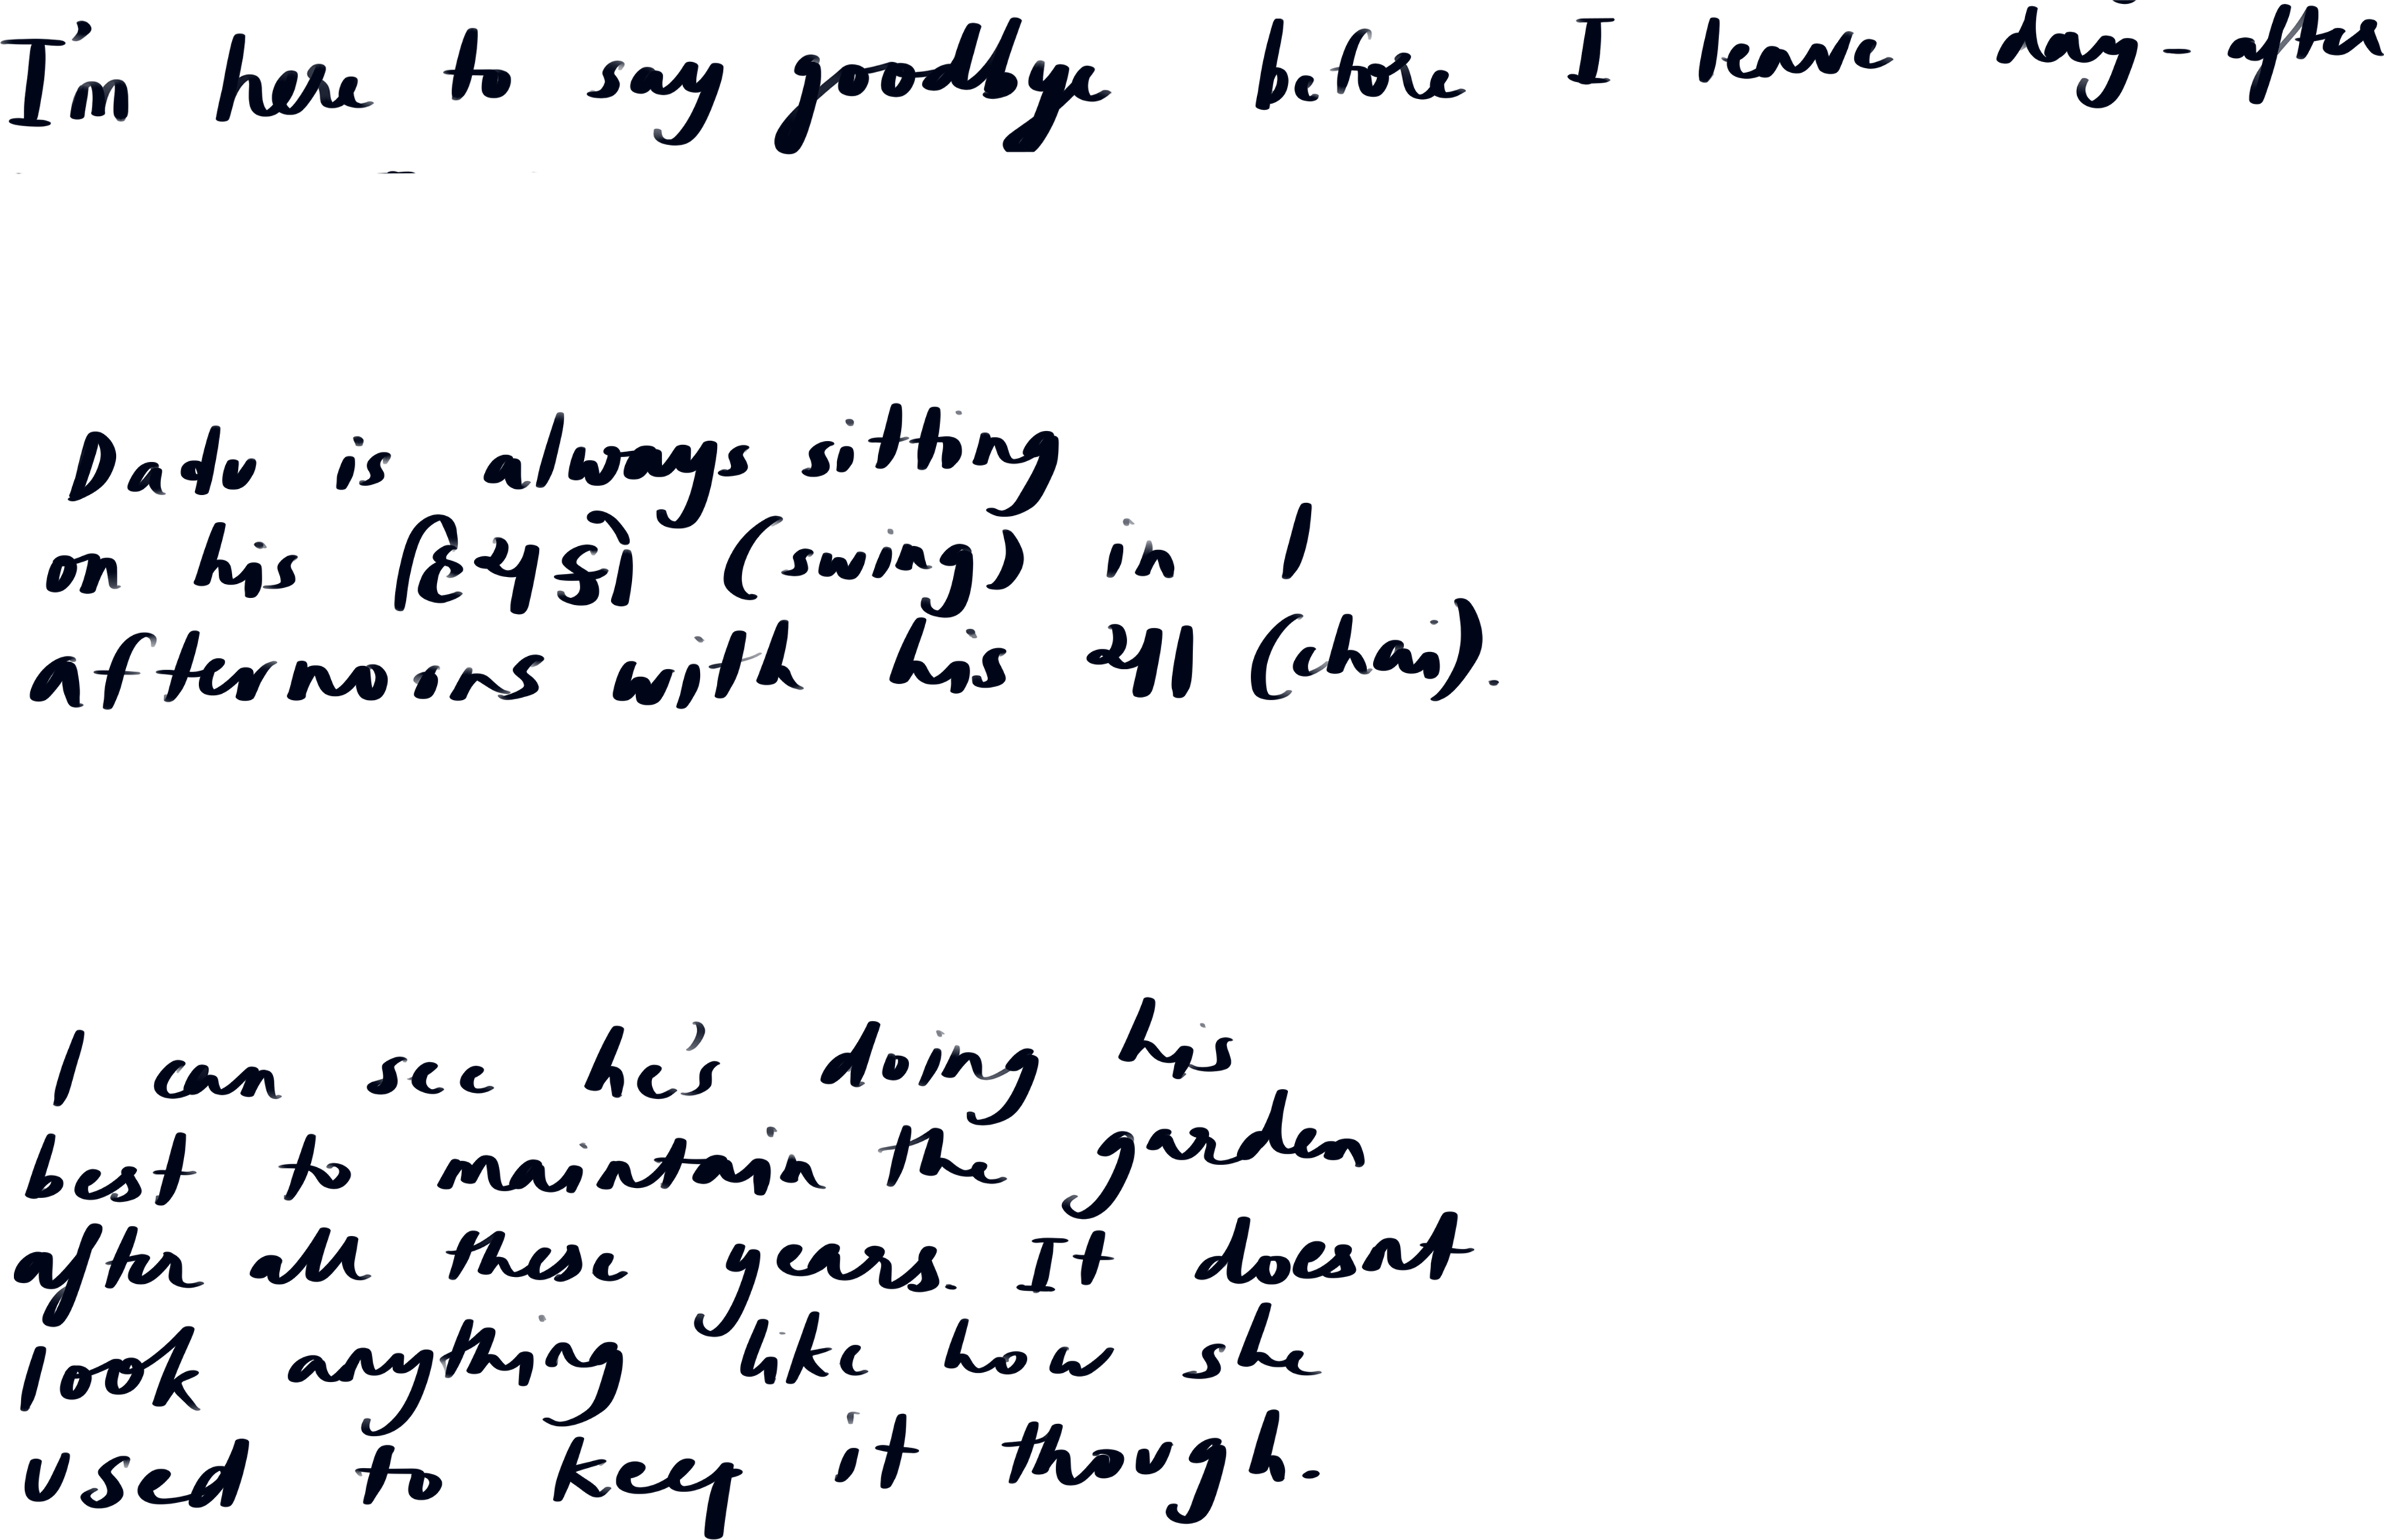 I'm here to say goodbye before I leave day-after
Dadu is always sitting
on his હિંચકો (swing) in
afternoons with his ચા (chai).
I can see he's doing his
best to maintain the garden
after all these years. It doesnt
look anything like how she
used to keep it though.